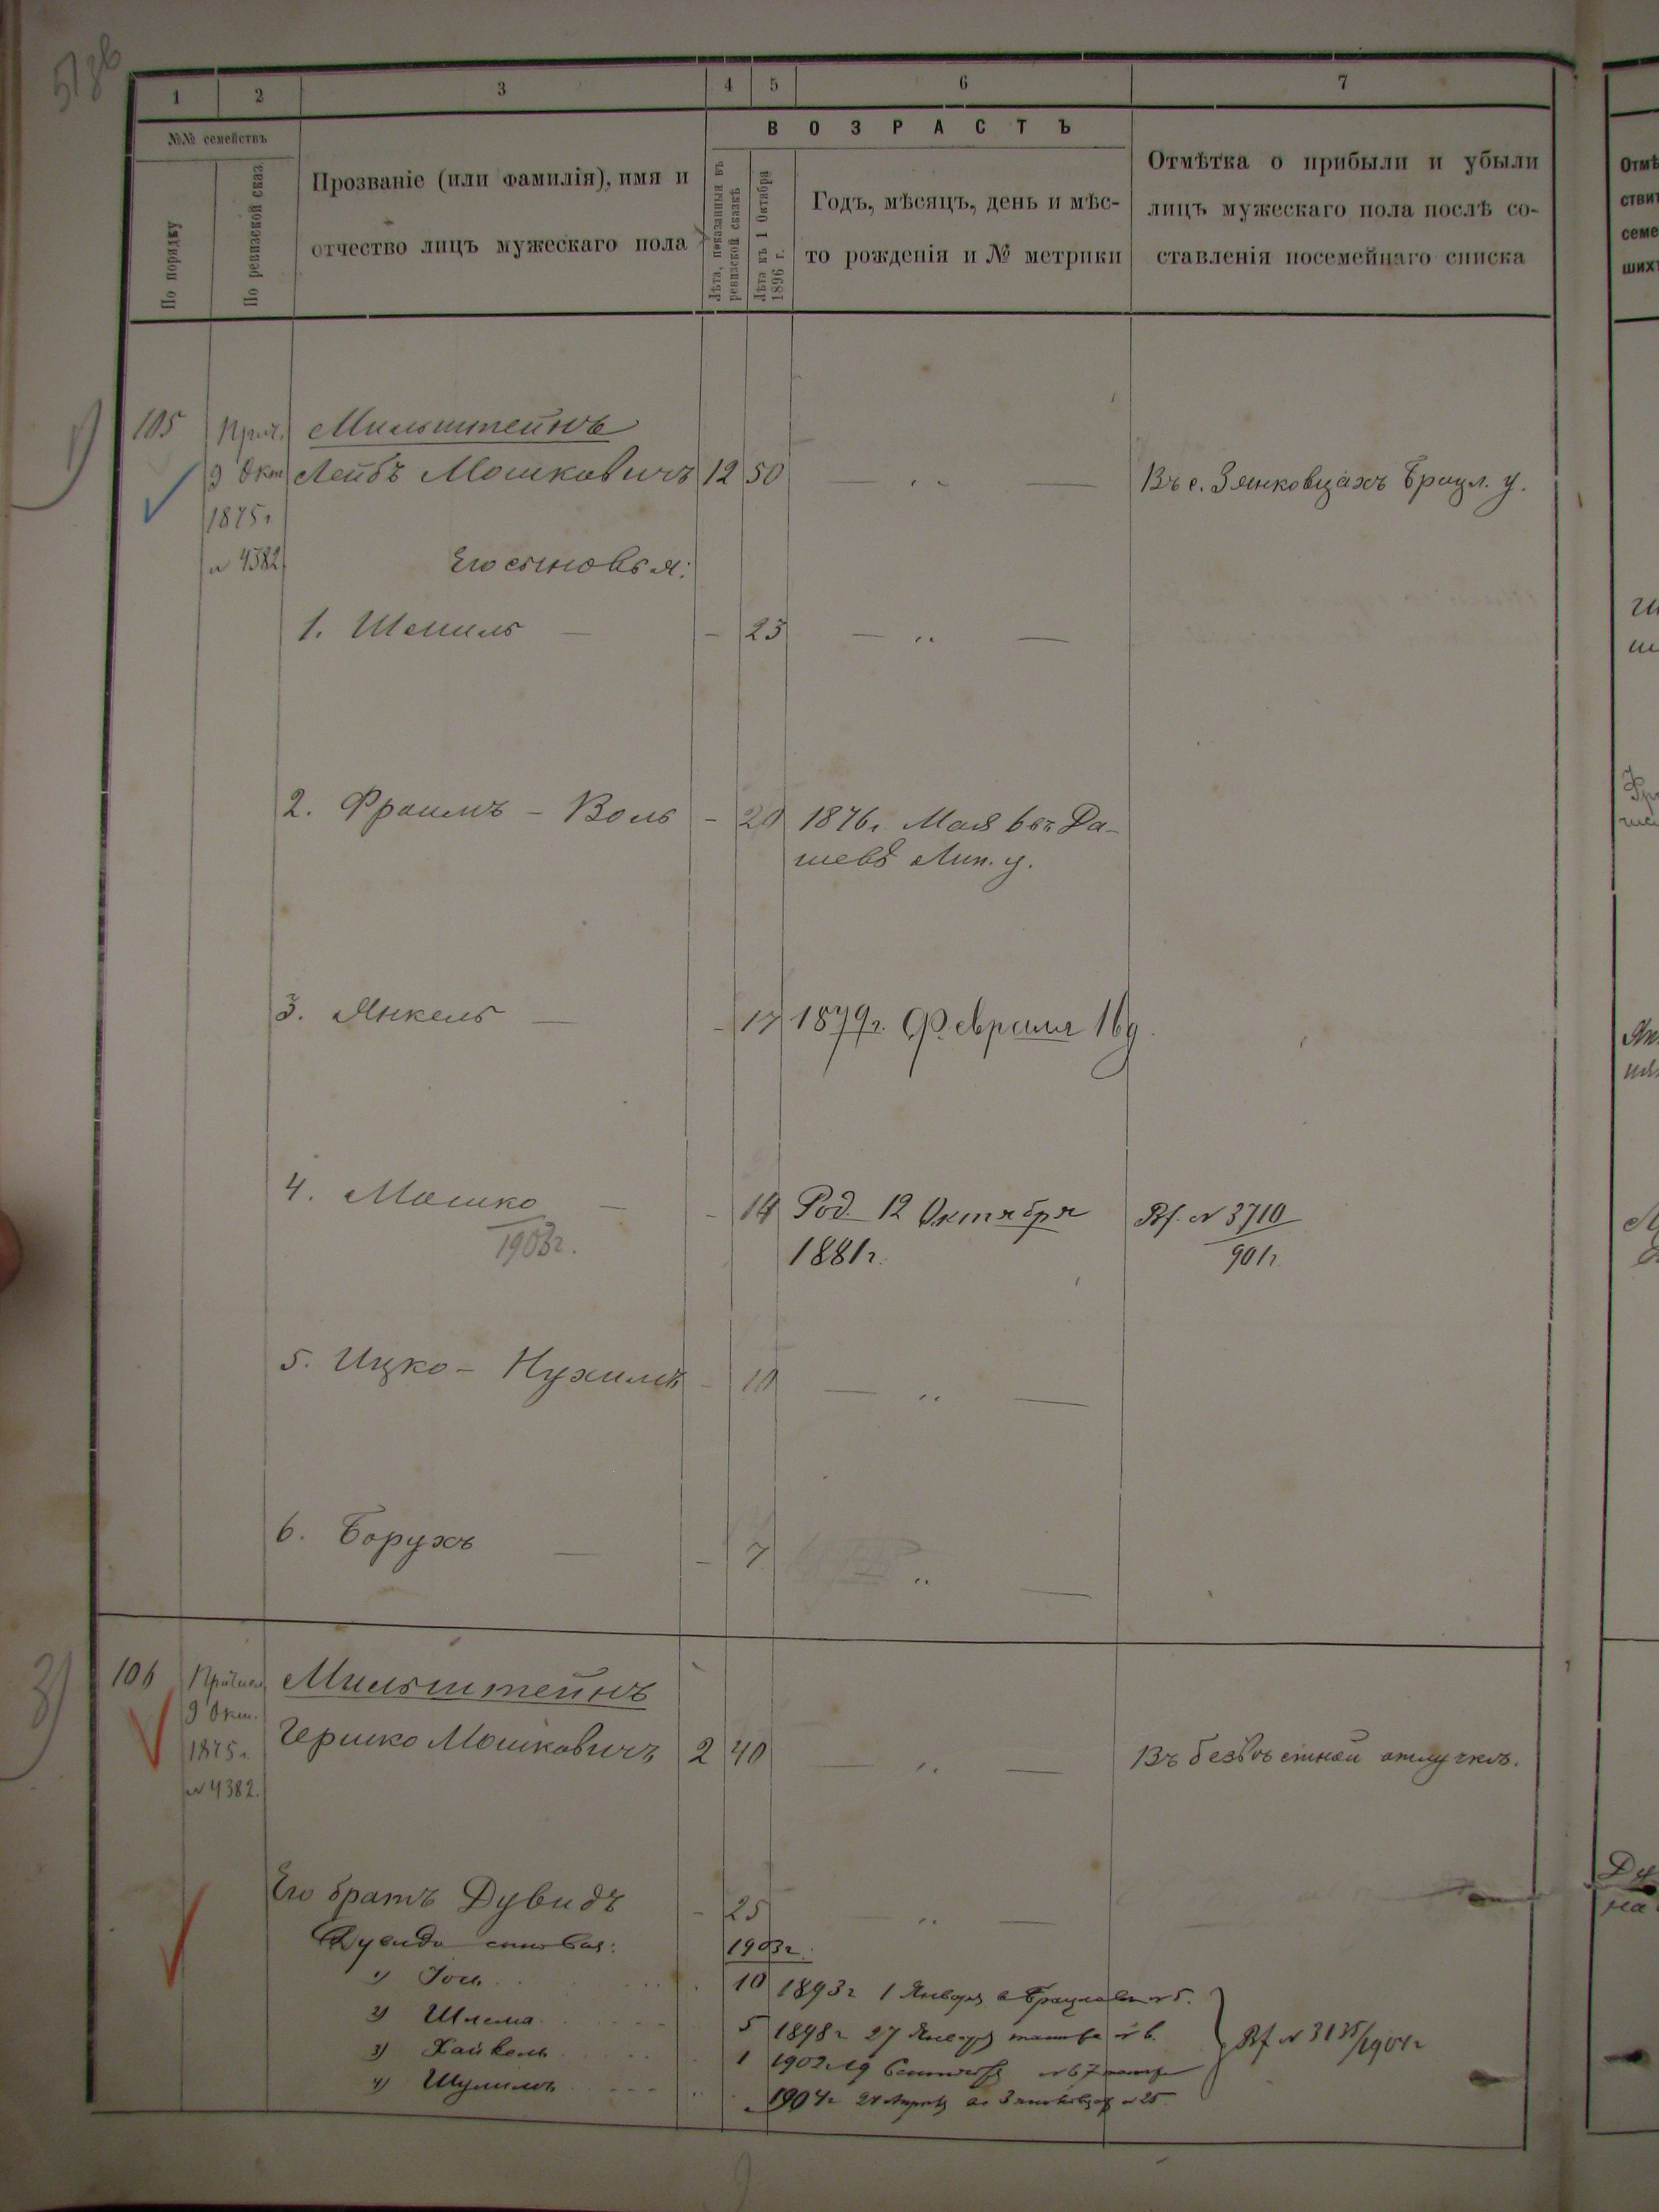 1 2 3 4 5 6 7
№№ семействъ
По порядку
По ревизской сказ
Прозваніе (или фамилія), имя и
отчество лицъ мужескаго пола
ВОЗРАСТЪ
Лѣта, показанныя въ
ревизской сказкѣ
Лѣта къ 1 Октября
1896 г.
Годъ, мѣсяцъ, день и мѣс-
то рожденія и № метрики
Отмѣтка о прибыли и убыли
лицъ мужескаго пола послѣ со-
ставленія посемейнаго списка
105 Прич. Мильштейнъ
9 Окт Лейбъ Мошковичъ 12 50 — „ — Въ с. Зянковцахъ Брацл. у.
1875 г
№ 4382
Его сыновья:
1. Шмиль — - 23 — „ —
2. Фроимъ - Воль - 20 1876 г. Мая 6 въ Да-
шевѣ Лип. у.
3. Янкель — - 17 1879 г. Февраля 16 д.
4. Мошко — - 14 Род. 12 Октября Вх. № 3710
1903 г. 1881 г. 901 г.
5. Ицко - Нухимъ - 10 — „ —
6. Борухъ — - 7 „ —
106 Причисл. Мильштейнъ
9 Окт.
1875 г. Гершко Мошковичъ 2 40 — „ — Въ безвѣстной отлучкѣ.
№ 4382.
Его братъ Дувидъ - 25 — „ —
Дувида сыновья: 1903 г.
1) Іось 10 1893 г 1 Января в Брацлавѣ № 5.
2) Шлема 5 1898 г 27 Января № 6. Вх № 3135/1904 г
3) Хайкель 1 1902 г 19 Сентября № 67
4) Шулимъ 1904 г 24 Апрѣля в Зянковцах № 25.